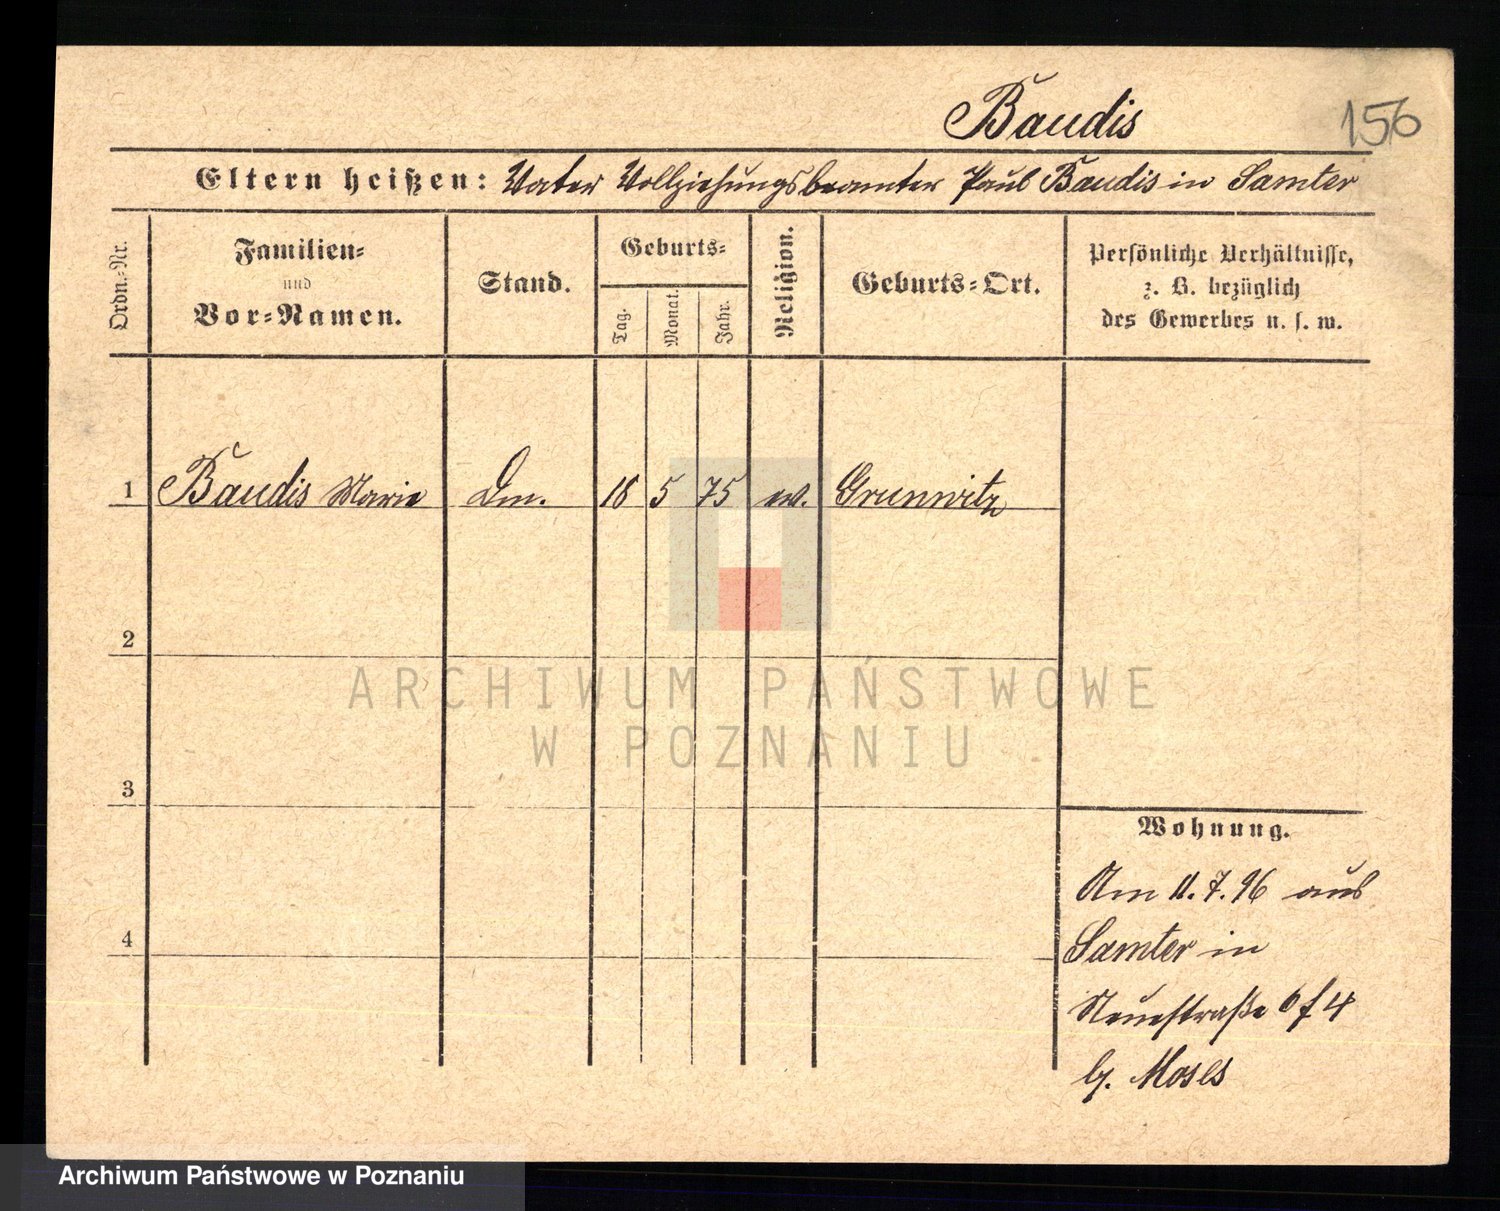 Baudis
156
Eltern heißen: Vater Vollziehungsbeamter Paul Baudis in Samter
Ordn.-Nr.
Familien-
und
Vor-Namen.
Stand.
Geburts-
Tag.
Monat.
Jahr.
Religion.
Geburts-Ort.
Persönliche Verhältnisse,
z. B. bezüglich
des Gewerbes u. s. w.
1 Baudis Marie Dm. 18 5 75 ev. Grunwitz
2
3
4
Wohnung.
Am 11.7.96 aus
Samter in
Neuestraße 6 f 4
b. Moses
ARCHIWUM PAŃSTWOWE
W POZNANIU
Archiwum Państwowe w Poznaniu